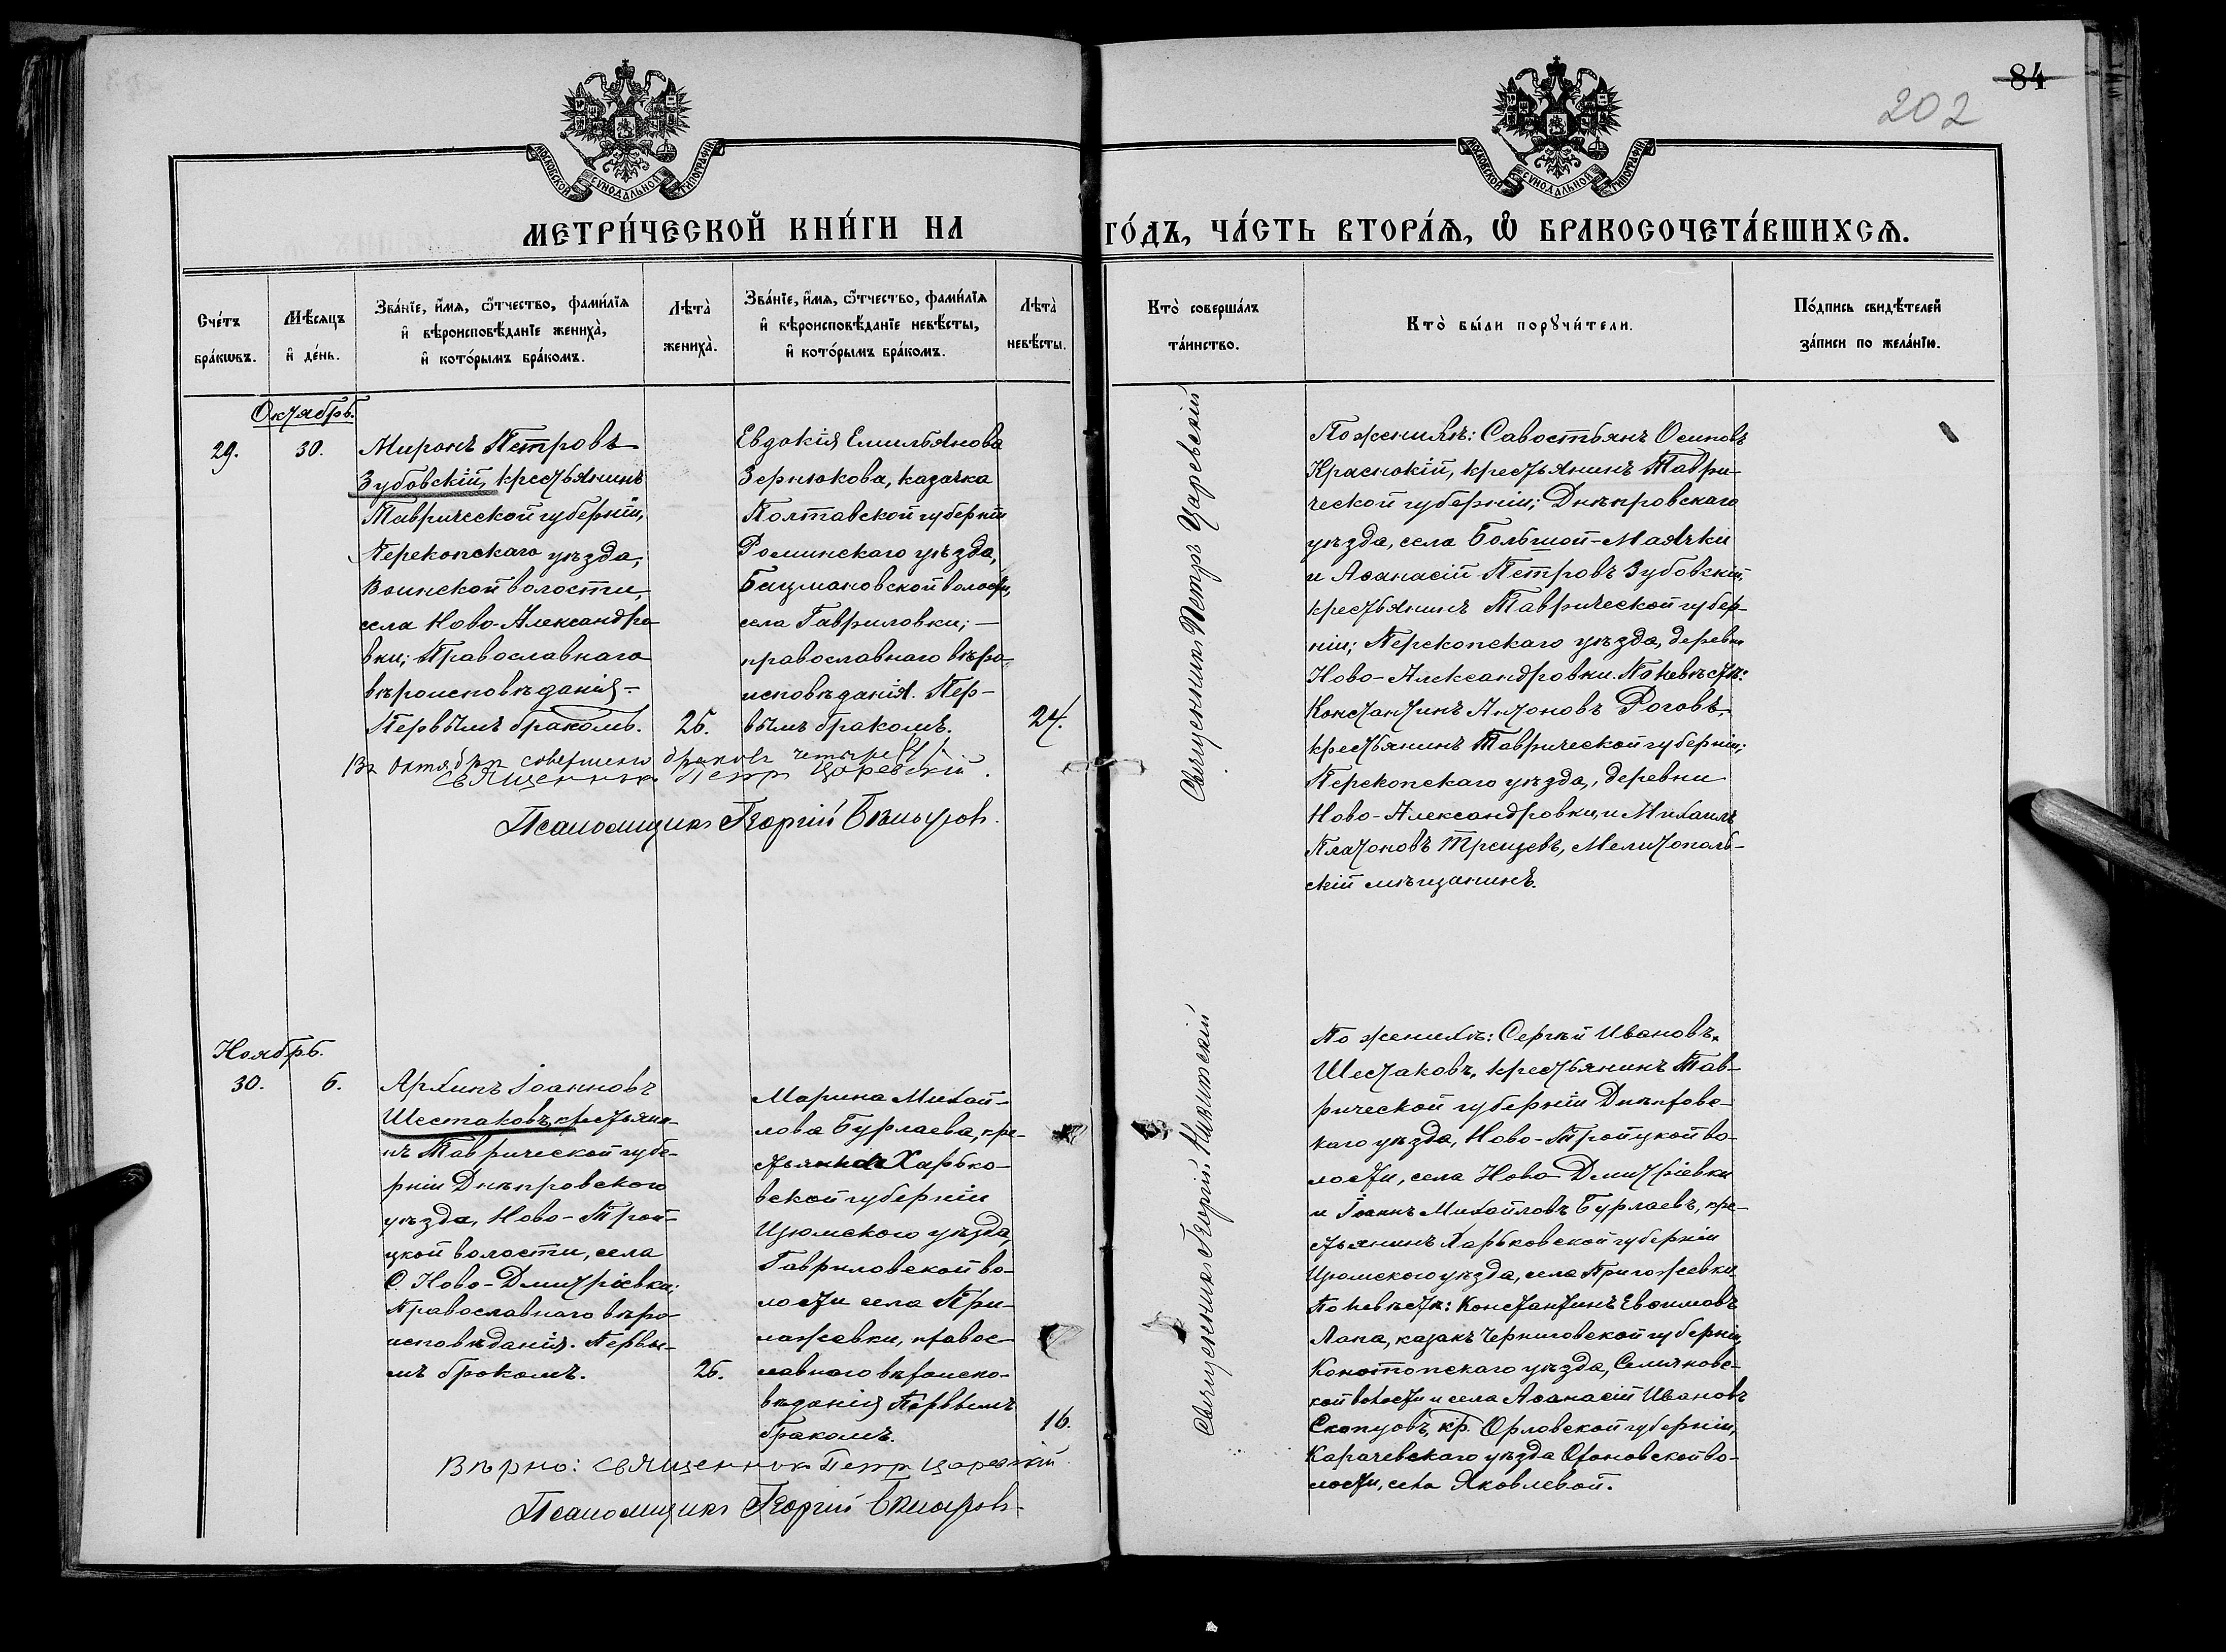 84
202
МОСКОВСКОЙ СУНОДАЛЬНОЙ ТИПОГРАФІИ
МОСКОВСКОЙ СУНОДАЛЬНОЙ ТИПОГРАФІИ
МЕТРИ́ЧЕСКОЙ КНИ́ГИ НА
ГО́ДЪ, ЧА́СТЬ ВТОРА́Я, Ѡ БРАКОСОЧЕТА́ВШИХСЯ.
Сче́тъ
бра́кѡвъ.
Мѣ́сяцъ
и҆ де́нь.
Зва́нїе, и҆́мя, ѻ҆́тчество, фами́лїя
и҆ вѣроисповѣ́данїе жениха̀,
и҆ кото́рымъ бра́комъ.
Лѣта̀
жениха̀.
Зва́нїе, и҆́мя, ѻ҆́тчество, фами́лїя
и҆ вѣроисповѣ́данїе невѣ́сты,
и҆ кото́рымъ бра́комъ.
Лѣта̀
невѣ́сты.
Кто̀ соверша́лъ
та́инство.
Кто̀ бы́ли порꙋчи́тели.
По́дпись свидѣ́телей
за́писи по жела́нїю.
Октябрь.
29.
30.
Миронъ Петровъ
Зубовскій, крестьянинъ
Таврической губерніи,
Перекопскаго уѣзда,
Воинской волости,
села Ново-Александро-
вки; Православнаго
вѣроисповѣданія-
Первымъ бракомъ.
26.
Евдокія Емильянова
Зернюкова, казачка
Полтавской губерніи
Роминскаго уѣзда,
Бацмановской волости,
села Гавриловки; —
православнаго вѣро-
исповѣданія. Пер-
вымъ бракомъ.
24.
Священникъ Петръ Царевскій
По женихѣ: Савостьянъ Осиповъ
Краснокій, крестьянинъ Таври-
ческой губерніи; Днѣпровскаго
уѣзда, села Большой-Маячки
и Аѳанасій Петровъ Зубовскій,
крестьянинъ Таврической губер-
ніи; Перекопскаго уѣзда, деревни
Ново-Александровки. По невѣстѣ:
Константинъ Антоновъ Роговъ,
крестьянинъ Таврической губерніи;
Перекопскаго уѣзда, деревни
Ново-Александровки, и Михаилъ
Платоновъ Трещевъ, Мелитополь-
скій мѣщанинъ.
Въ октябрѣ совершено браковъ четыре (4)
Священникъ Петр Царевскій.
Псаломщикъ Георгій
Ноябрь.
30.
6.
Архипъ Іоанновъ
Шестаковъ, крестьяни-
нъ Таврической губе-
рніи Днѣпровского
уѣзда, Ново-Трои-
цкой волости, села
С. Ново-Дмитріевки;
Православнаго вѣро-
исповѣданія. Первы-
мъ бракомъ.
26.
Марина Михай-
лова Бурлаева, кре-
стьянка Харько-
вской губерніи
Изюмского уѣзда,
Гавриловской во-
лости села При-
ложевки, правос-
лавного вѣроиспо-
вѣданія Первымъ
бракомъ.
16.
Священникъ Георгій Никитскій
По женихѣ: Сергѣй Ивановъ
Шестаковъ, крестьянинъ Тав-
рической губерніи Днѣпровс-
каго уѣзда, Ново-Троицкой во-
лости, села Ново Дмитріевки
и Іоаннъ Михайловъ Бурлаевъ, кре-
стьянинъ Харьковской губерніи
Изюмского уѣзда, села Пригожевки.
По невѣстѣ: Константинъ Евѳимовъ
Лапа, казакъ Черниговской губерніи,
Конотопскаго уѣзда, Семяновс-
кой волости и села Аѳанасій Ивановъ
Скопцовъ, кр. Орловской губерніи,
Карачевскаго уѣзда во-
лости, села Яковлевой.
Вѣрно: священникъ Петр Царевскій
Псаломщикъ Георгій